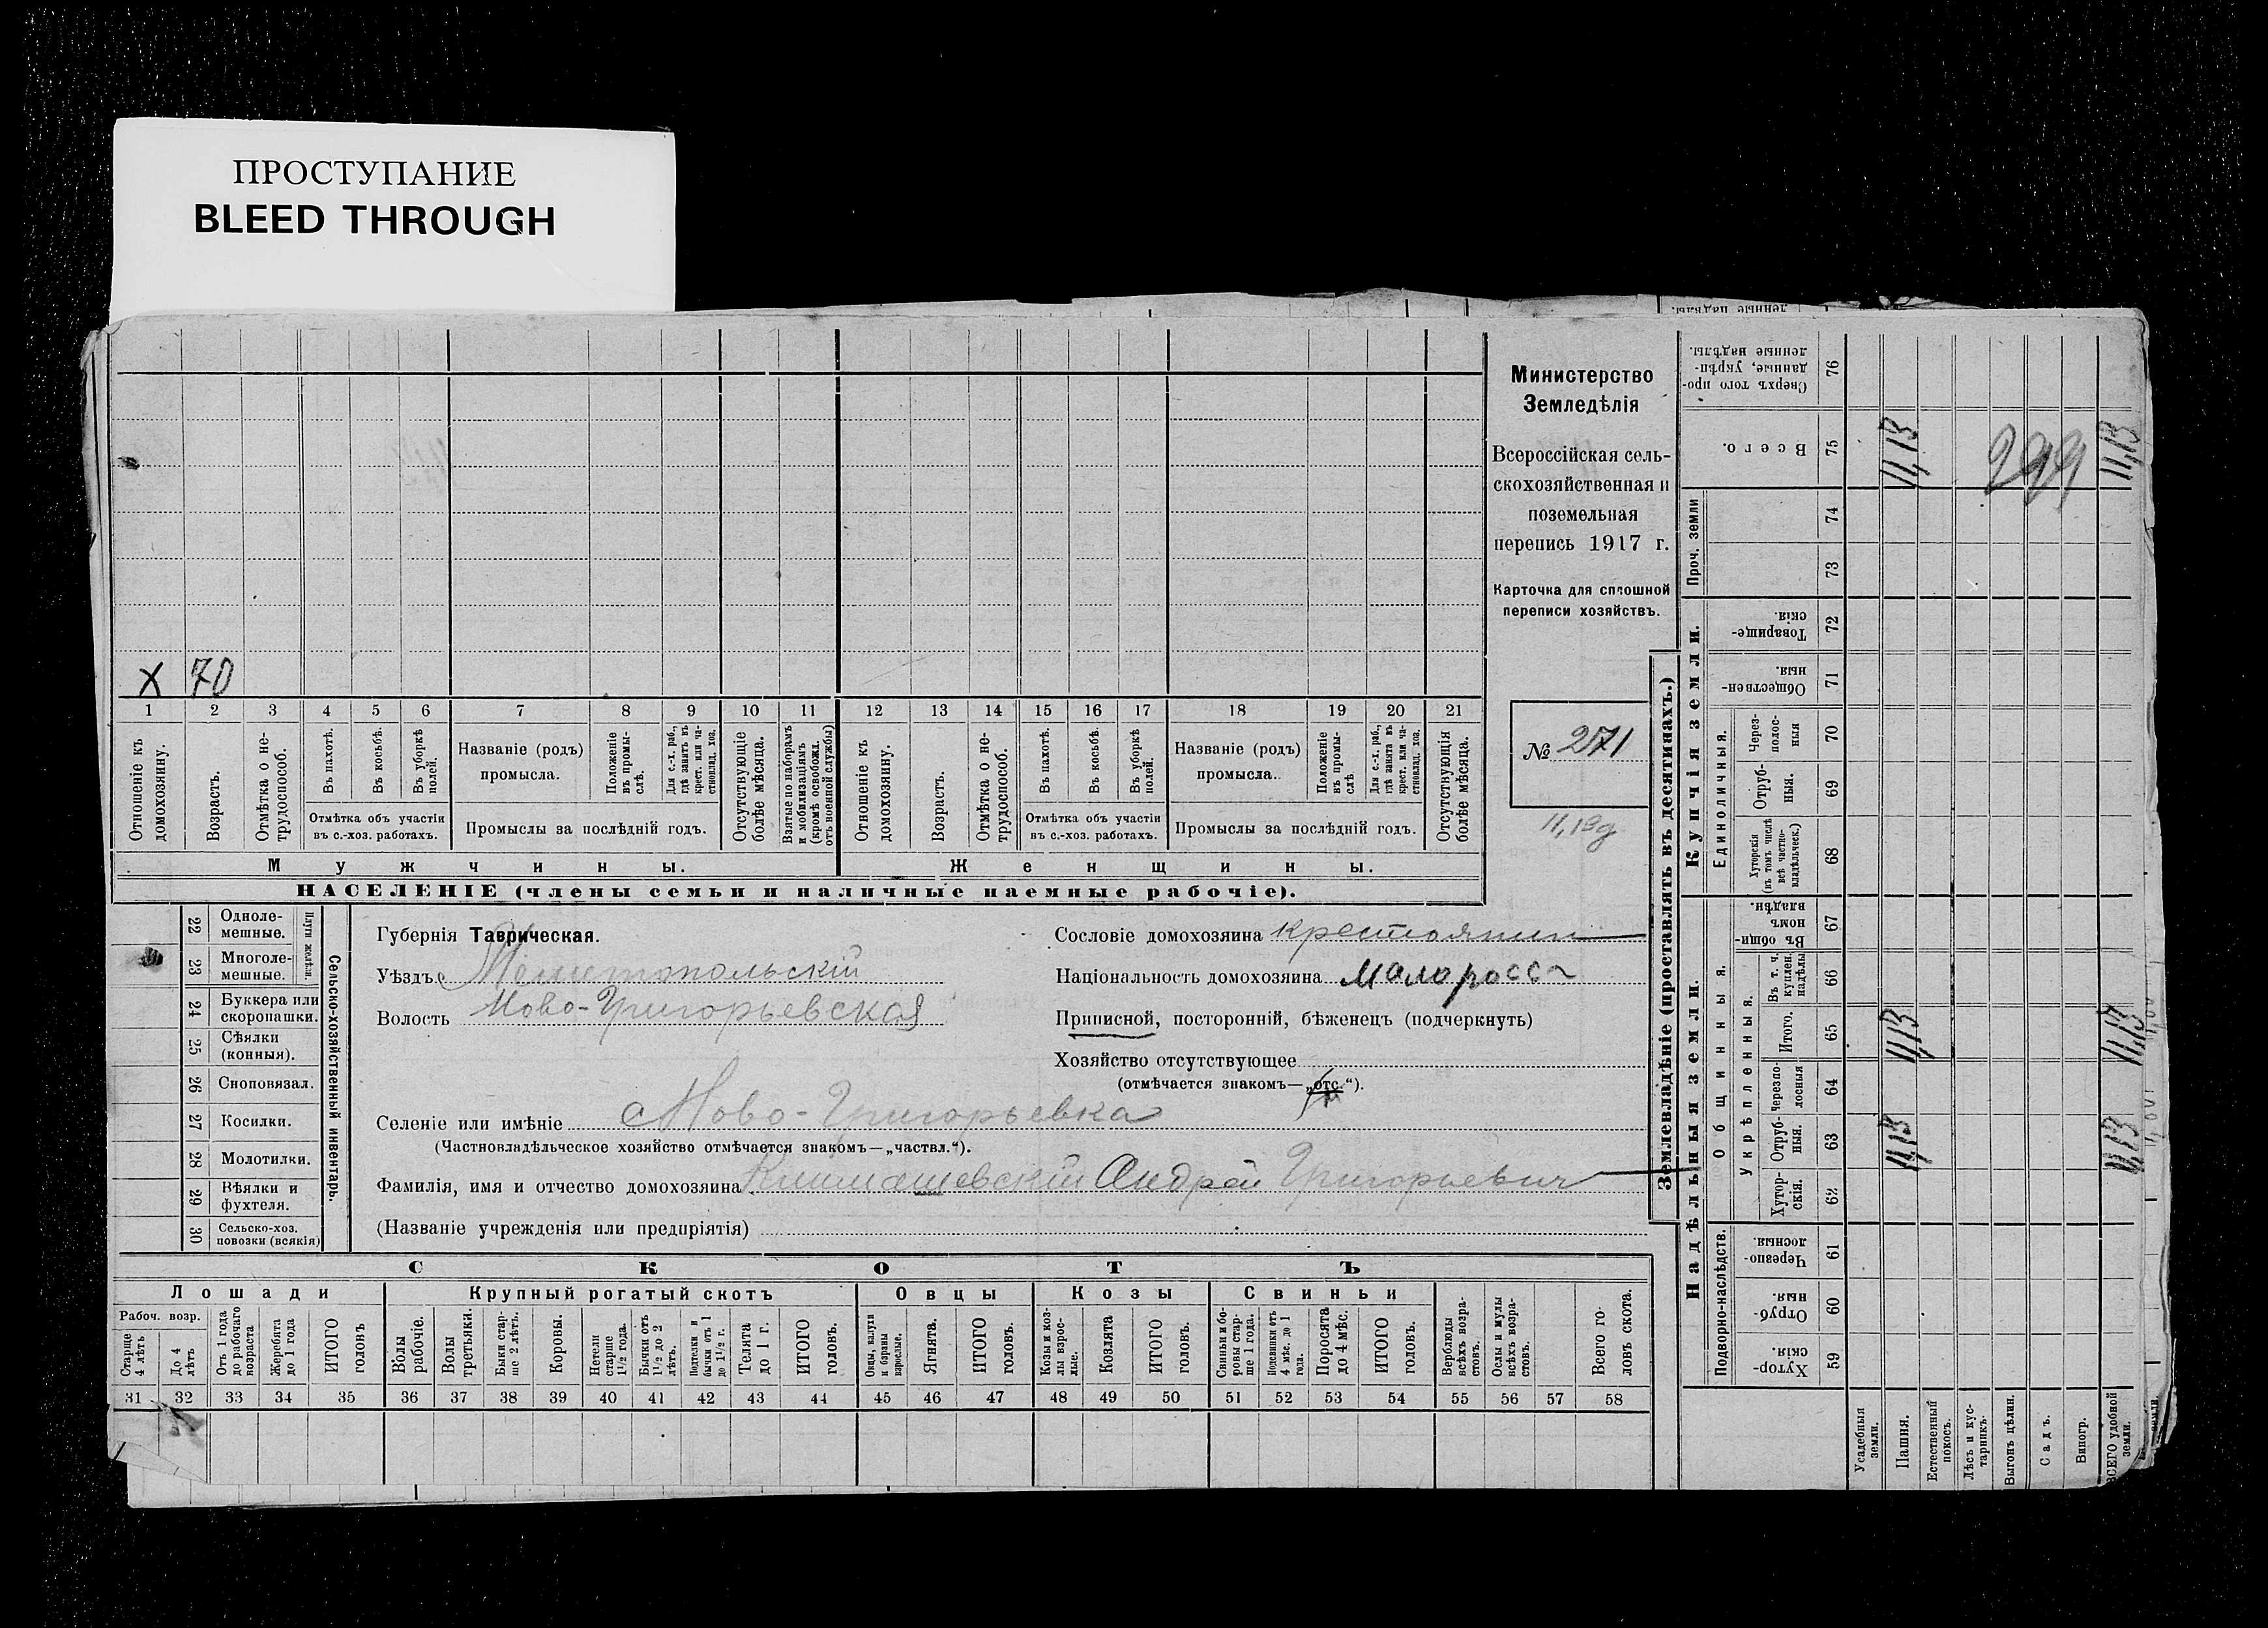 ПРОСТУПАНИЕ
BLEED THROUGH
Х 70
1 2 3 4 5 6 7 8 9 10 11 12 13 14 15 16 17 18 19 20 21
Отношеніе къ домохозяину.
Возрастъ.
Отмѣтка о не-
трудоспособ.
Въ пахотѣ.
Въ косьбѣ.
Въ уборкѣ полей.
Отмѣтка объ участіи
въ с.-хоз. работахъ.
Названіе (родъ)
промысла.
Положеніе въ промы-
слѣ.
Для с.-х. раб., гдѣ занятъ въ крест. или ча-
стновлад. хоз.
Промыслы за послѣдній годъ.
Отсутствующіе болѣе мѣсяца.
Взятые по наборамъ и мобилизаціямъ (кромѣ освобожд. отъ военной службы)
Отношеніе къ домохозяину.
Возрастъ.
Отмѣтка о не-
трудоспособ.
Въ пахотѣ.
Въ косьбѣ.
Въ уборкѣ полей.
Отмѣтка объ участіи
въ с.-хоз. работахъ.
Названіе (родъ)
промысла.
Положеніе въ промы-
слѣ
Для с.-х. раб., гдѣ занята въ крест. или ча-
стновлад. хоз.
Промыслы за послѣдній годъ.
Отсутствующія болѣе мѣсяца.
Мужчины.
Женщины.
НАСЕЛЕНІЕ (члены семьи и наличные наемные рабочіе).
Министерство
Земледѣлія
Всероссійская сель-
скохозяйственная и
поземельная
перепись 1917 г.
Карточка для сплошной
переписи хозяйствъ.
№ 271
11,13д
22 Одноле-
мешные.
23 Многоле-
мешные.
Плуги желѣзн.
24 Буккера или
скоропашки.
25 Сѣялки
(конныя).
26 Сноповязал.
27 Косилки.
28 Молотилки.
29 Вѣялки и
фухтеля.
30 Сельско-хоз.
повозки (всякія)
Сельско-хозяйственный инвентарь.
Губернія Таврическая.
Уѣздъ Мелитопольскій
Волость Ново-Григорьевская
Селеніе или имѣніе Ново-Григорьевка
(Частновладѣльческое хозяйство отмѣчается знакомъ—„частвл.“).
Фамилія, имя и отчество домохозяина Климашевскій Андрей Григорьевич
(Названіе учрежденія или предпріятія)
Сословіе домохозяина крестьянин
Національность домохозяина малоросс
Приписной, посторонній, бѣженецъ (подчеркнуть)
Хозяйство отсутствующее
(отмѣчается знакомъ—„отс.“).
СКОТЪ
Лошади
Крупный рогатый скотъ
Овцы
Козы
Свиньи
Рабоч. возр.
Старше 4 лѣтъ
До 4 лѣтъ
Отъ 1 года до рабочаго возраста
Жеребята до 1 года
ИТОГО головъ
Волы рабочіе.
Волы третьяки.
Быки стар-
ше 2 лѣтъ.
Коровы.
Нетели старше 1½ года.
Бычки отъ 1½ до 2 лѣтъ.
Подтелки и бычки отъ 1 до 1½ г.
Телята до 1 г.
ИТОГО головъ.
Овцы, валухи и бараны взрослые.
Ягнята.
ИТОГО головъ.
Козы и коз-
лы взрос-
лые.
Козлята
ИТОГО головъ.
Свиньи и бо-
ровы стар-
ше 1 года.
Подсвинки отъ 4 мѣс. до 1 года.
Поросята до 4 мѣс.
ИТОГО головъ.
Верблюды всѣхъ возра-
стовъ.
Ослы и мулы всѣхъ возра-
стовъ.
Всего го-
ловъ скота.
31 32 33 34 35 36 37 38 39 40 41 42 43 44 45 46 47 48 49 50 51 52 53 54 55 56 57 58
Землевладѣніе (проставлять въ десятинахъ.)
Купчія земли.
Надѣльныя земли.
Сверхъ того про-
данные, укрѣп-
ленные надѣлы.
76
Всего.
75
11,13
299
11,13
Проч. земли
74
73
Товарище-
скія.
72
Обществен-
ныя.
71
Единоличныя.
Через-
полос-
ныя
70
Отруб-
ныя.
69
Хуторскія (въ томъ числѣ всѣ частно-
владѣльческ.)
68
Общинныя.
Въ общи-
номъ владѣн.
67
Укрѣпленныя.
Въ т. ч. куплен. надѣлы
66
Итого.
65
11,13
11,13
Черезпо-
лосныя
64
Отруб-
ныя.
63
11,13
11,13
Хутор-
скія.
62
Подворно-наслѣдств.
Черезпо-
лосныя.
61
Отруб-
ныя.
60
Хутор-
скія.
59
Усадебныя земли.
Пашня.
Естественный покосъ.
Лѣсъ и кус-
тарникъ.
Выгонъ цѣлин.
Садъ.
Виногр.
ВСЕГО удобной земли.